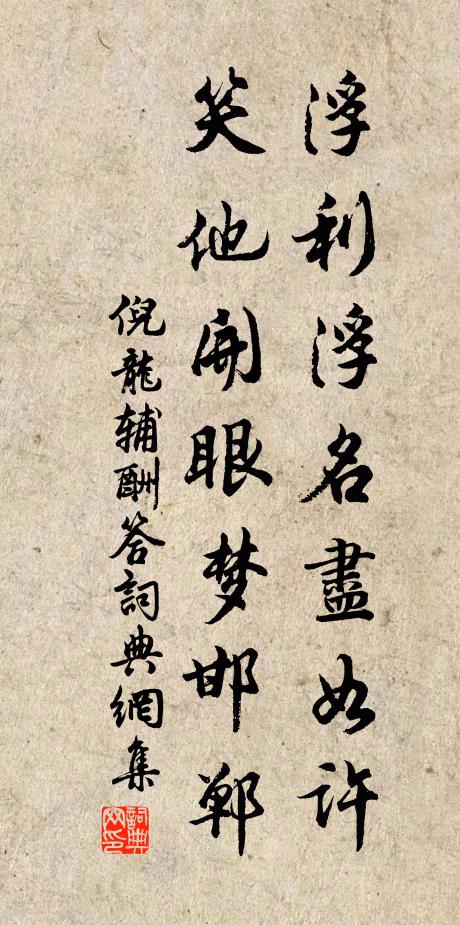 浮利浮名盡如許
笑他開眼梦邯鄲
倪龍辅酬答詞典網集
詞典网印